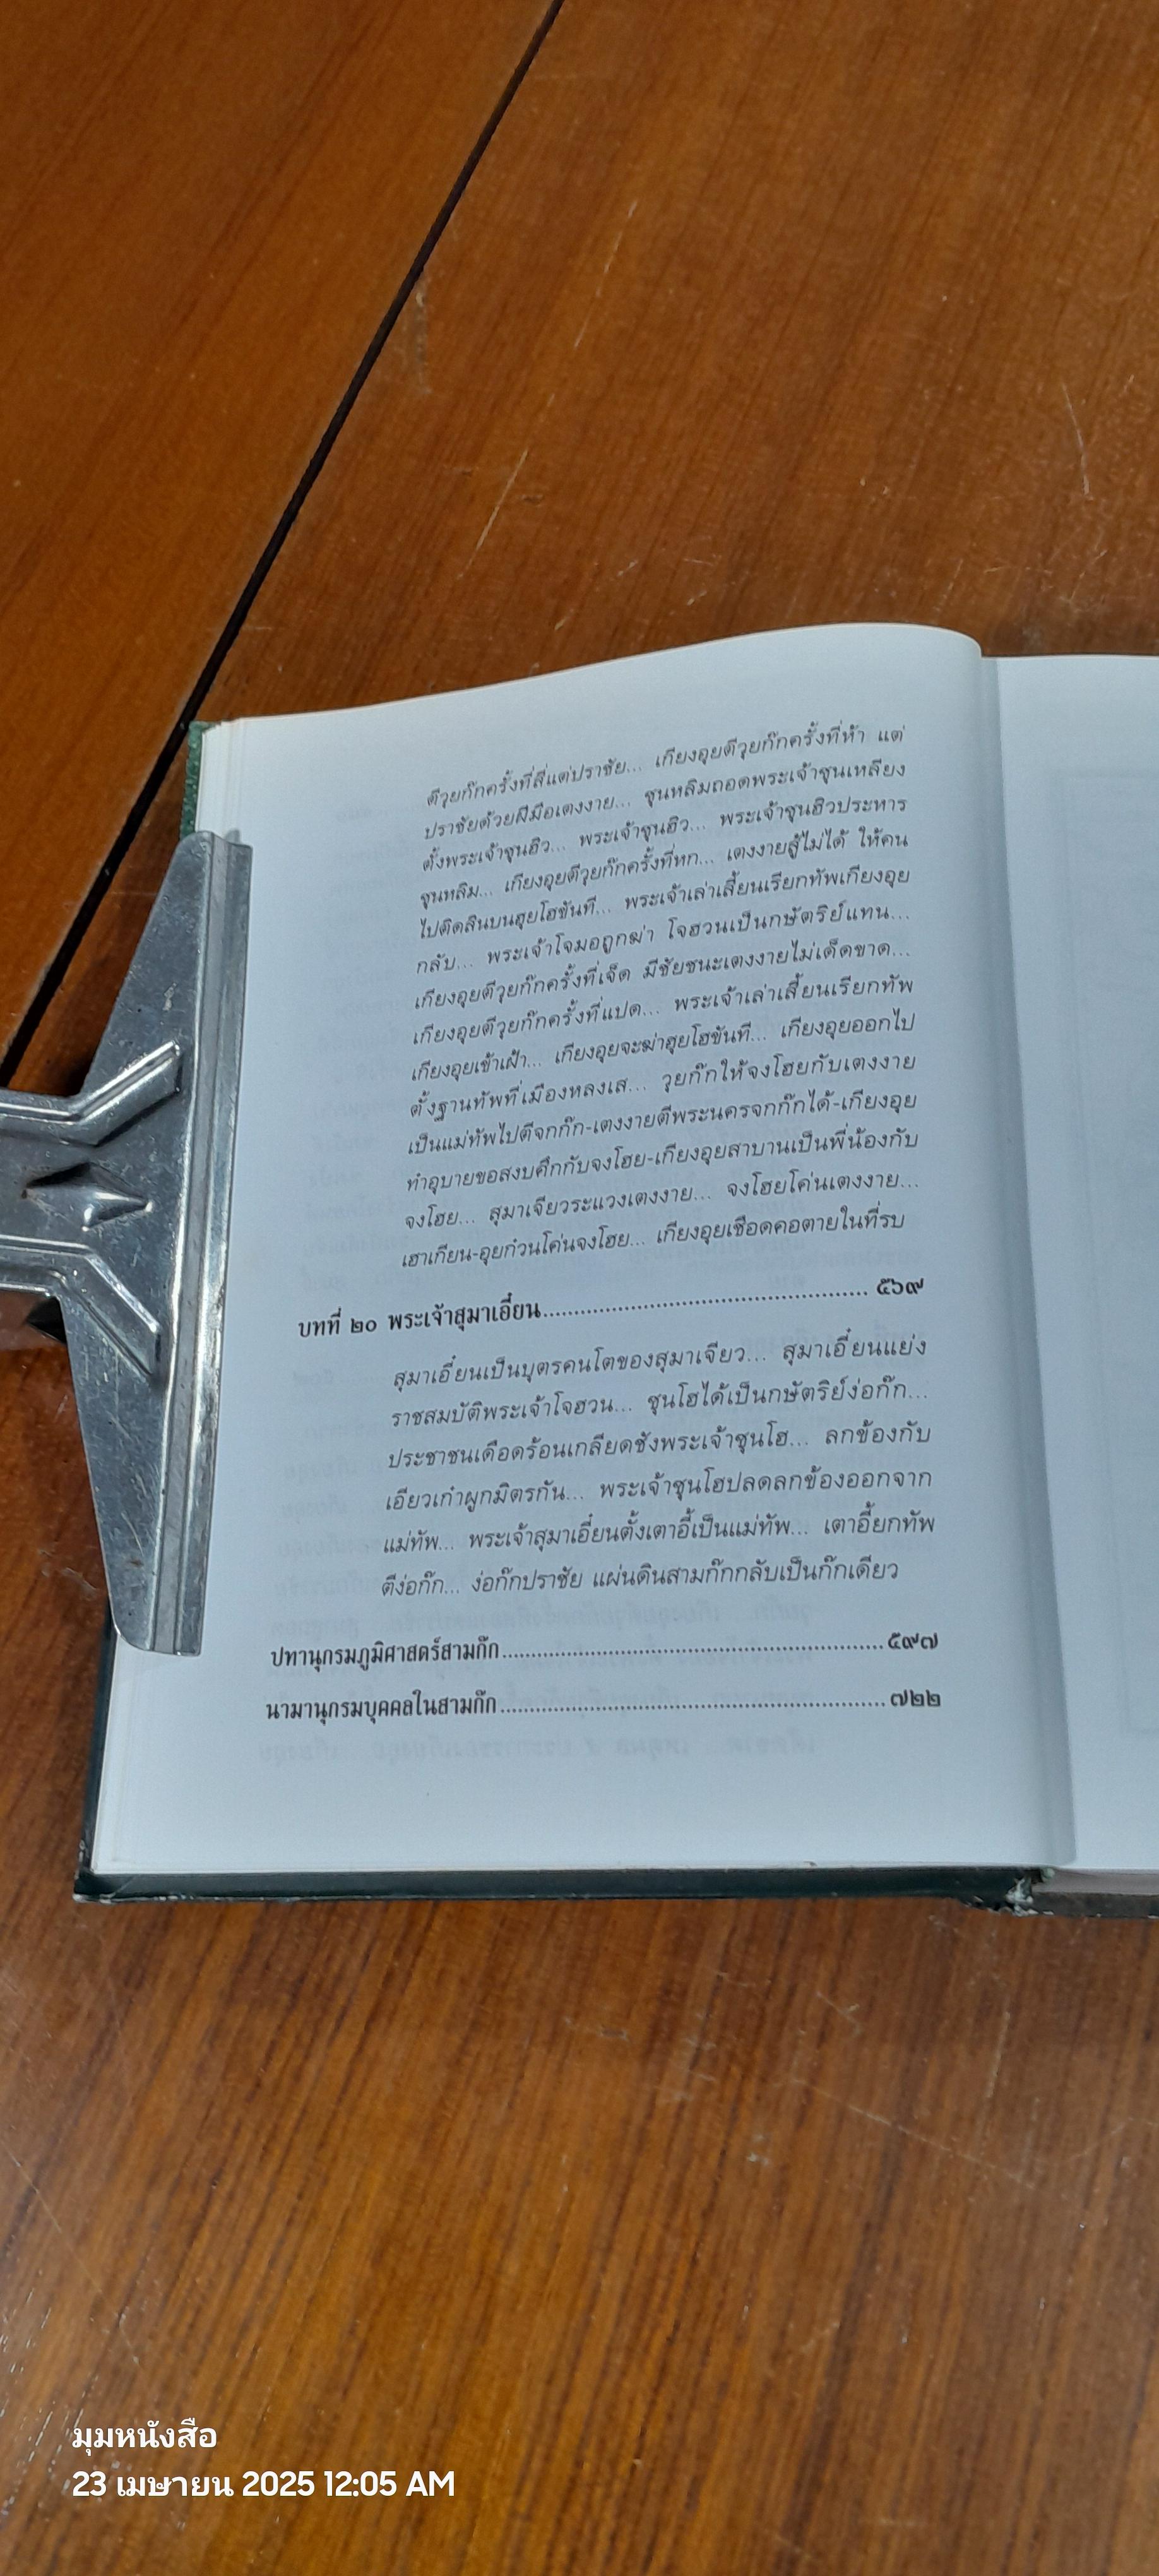 ตีวุยก๊กครั้งที่สี่แต่ปราชัย... เกียงอุยตีวุยก๊กครั้งที่ห้า แต่
ปราชัยด้วยฝีมือเตงงาย... ซุนหลิมถอดพระเจ้าซุนเหลียง
ตั้งพระเจ้าซุนฮิว... พระเจ้าซุนฮิว... พระเจ้าซุนฮิวประหาร
ซุนหลิม... เกียงอุยตีวุยก๊กครั้งที่หก... เตงงายสู้ไม่ได้ ให้คน
ไปติดสินบนฮุยโฮขันที... พระเจ้าเล่าเสี้ยนเรียกทัพเกียงอุย
กลับ... พระเจ้าโจมอถูกฆ่า โจฮวนเป็นกษัตริย์แทน...
เกียงอุยตีวุยก๊กครั้งที่เจ็ด มีชัยชนะเตงงายไม่เด็ดขาด...
เกียงอุยตีวุยก๊กครั้งที่แปด... พระเจ้าเล่าเสี้ยนเรียกทัพ
เกียงอุยเข้าเฝ้า... เกียงอุยจะฆ่าฮุยโฮขันที... เกียงอุยออกไป
ตั้งฐานทัพที่เมืองหลงเส... วุยก๊กให้จงโฮยกับเตงงาย
เป็นแม่ทัพไปตีจกก๊ก-เตงงายตีพระนครจกก๊กได้-เกียงอุย
ทำอุบายขอสงบศึกกับจงโฮย-เกียงอุยสาบานเป็นพี่น้องกับ
จงโฮย... สุมาเจียวระแวงเตงงาย... จงโฮยโค่นเตงงาย...
เฮาเกียน-อุยก๋วนโค่นจงโฮย... เกียงอุยเชือดคอตายในที่รบ
บทที่ ๒๐ พระเจ้าสุมาเอี๋ยน.................................................... ๕๖๙
สุมาเอี๋ยนเป็นบุตรคนโตของสุมาเจียว... สุมาเอี๋ยนแย่ง
ราชสมบัติพระเจ้าโจฮวน... ซุนโฮได้เป็นกษัตริย์ง่อก๊ก...
ประชาชนเดือดร้อนเกลียดชังพระเจ้าซุนโฮ... ลกข้องกับ
เอียวเก๋าผูกมิตรกัน... พระเจ้าซุนโฮปลดลกข้องออกจาก
แม่ทัพ... พระเจ้าสุมาเอี๋ยนตั้งเตาอี้เป็นแม่ทัพ... เตาอี้ยกทัพ
ตีง่อก๊ก... ง่อก๊กปราชัย แผ่นดินสามก๊กกลับเป็นก๊กเดียว
ปทานุกรมภูมิศาสตร์สามก๊ก.............................................................๕๙๗
นามานุกรมบุคคลในสามก๊ก.............................................................๗๒๒
มุมหนังสือ
23 เมษายน 2025 12:05 AM